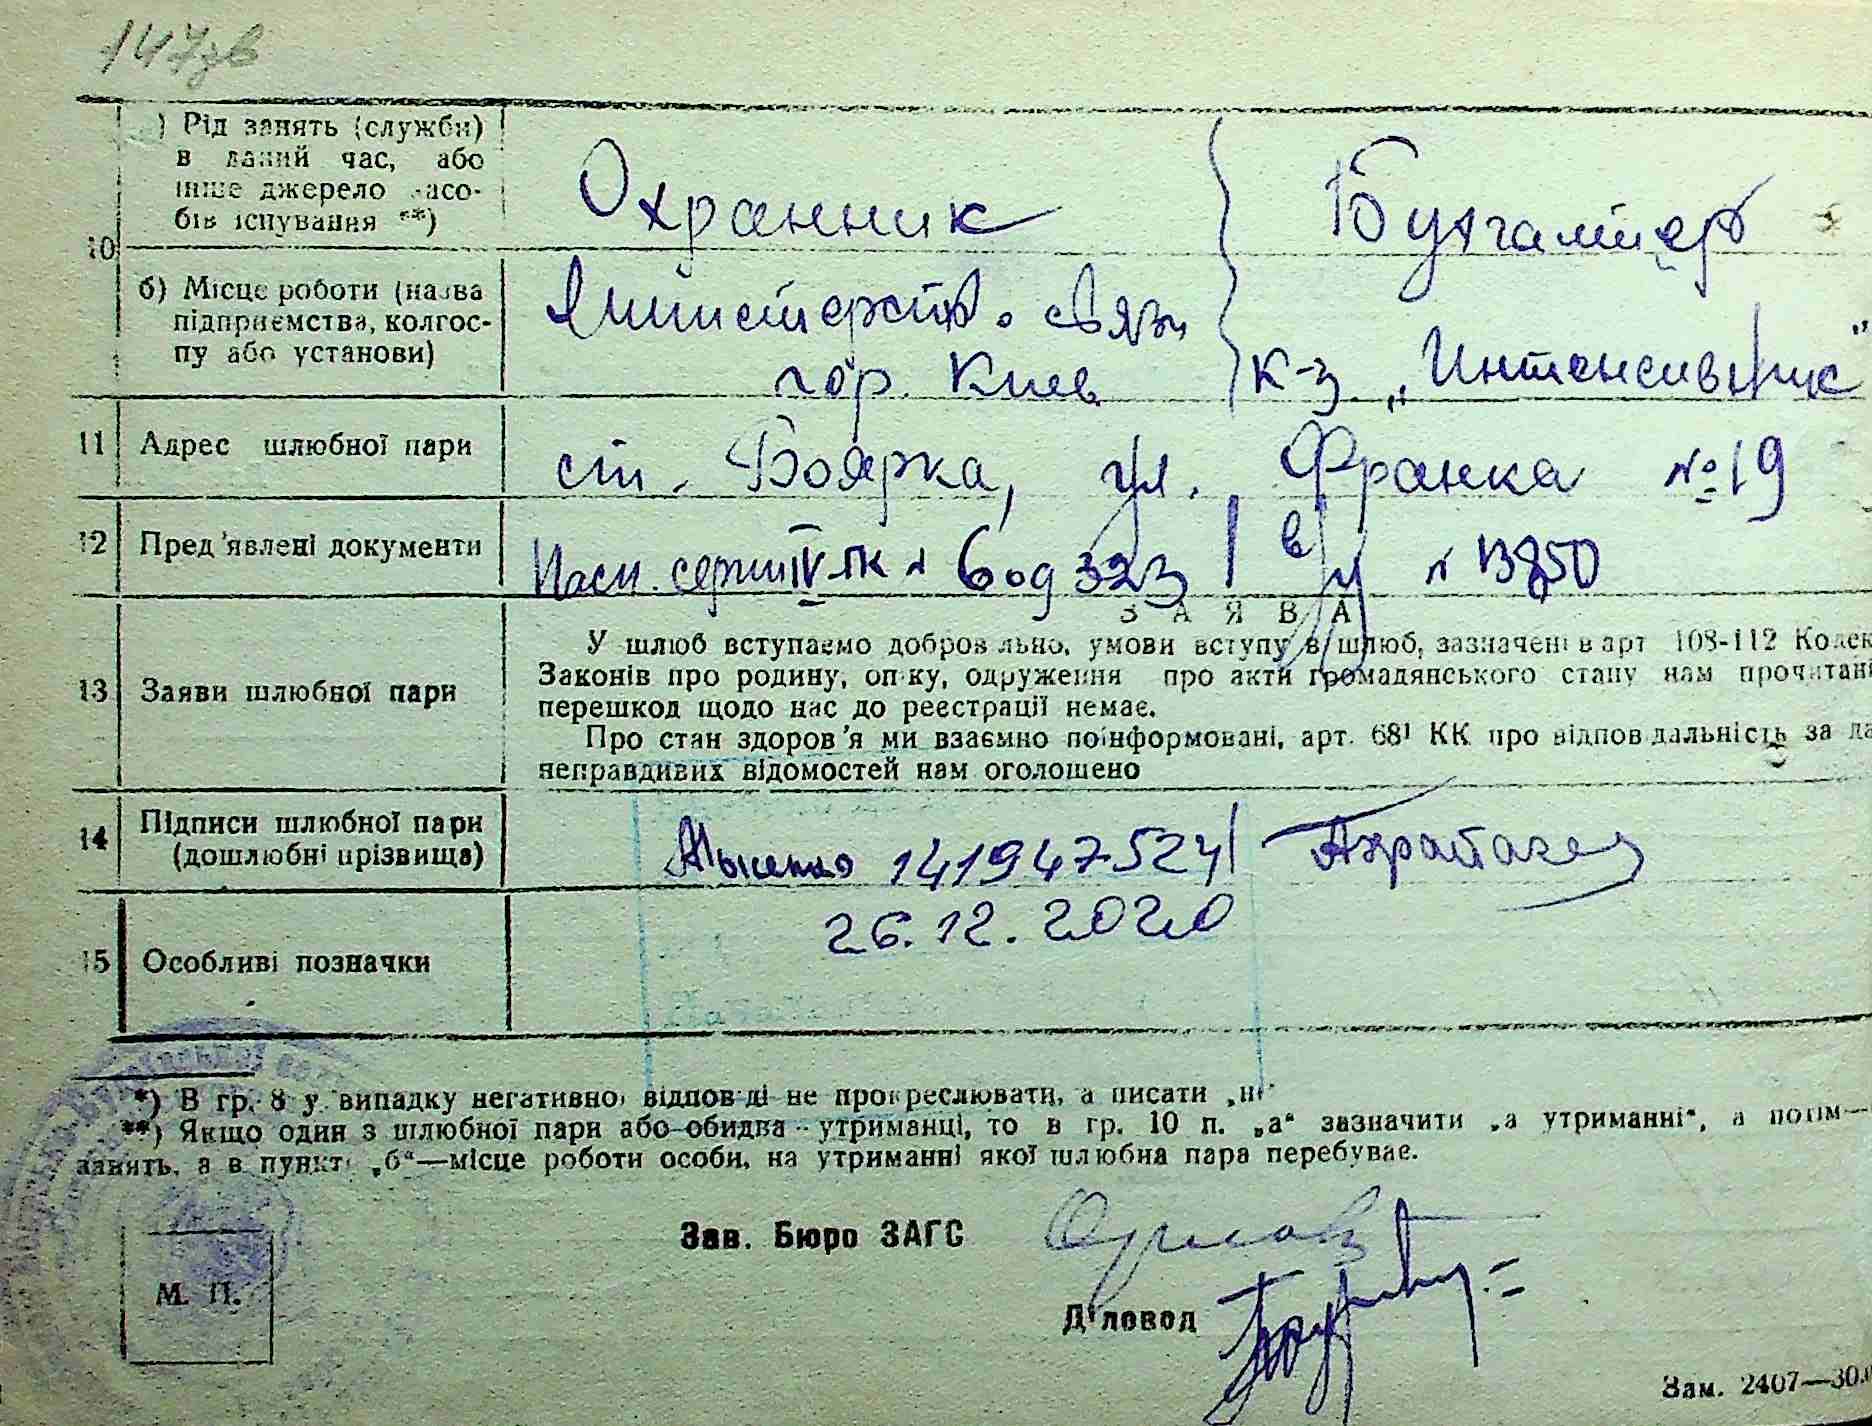 147зв
) Рід занять (служби)
в даний час, або
інше джерело засо-
бів існування **)
Охранник
Бухгалтер
10
б) Місце роботи (назва
підприємства, колгос-
пу або установи)
Министерство связи
гор. Киев
к-з „Интенсивник"
11 Адрес шлюбної пари
ст. Боярка, ул. Франка №19
12 Пред'явлені документи
Пасп. серии IV ЛК № 6 од 323
в/у № 13850
ЗАЯВА
13 Заяви шлюбної пари
У шлюб вступаємо добровільно, умови вступу в шлюб, зазначені в арт 108-112 Колек
Законів про родину, опіку, одруження про акти громадянського стану нам прочитані
перешкод щодо нас до реєстрації немає.
Про стан здоров'я ми взаємно поінформовані, арт. 68¹ КК про відповідальність за да
неправдивих відомостей нам оголошено
14 Підписи шлюбної пари
(дошлюбні прізвища)
141947524
26.12.2020
15 Особливі позначки
*) В гр. 8 у випадку негативної відповіді не прокреслювати, а писати „ні"
**) Якщо один з шлюбної пари або обидва утриманці, то в гр. 10 п. „а" зазначити „а утриманні", а потім—
занять, а в пункті „б"—місце роботи особи, на утриманні якої шлюбна пара перебуває.
Зав. Бюро ЗАГС
М. П.
Діловод
Зам. 2407—30.